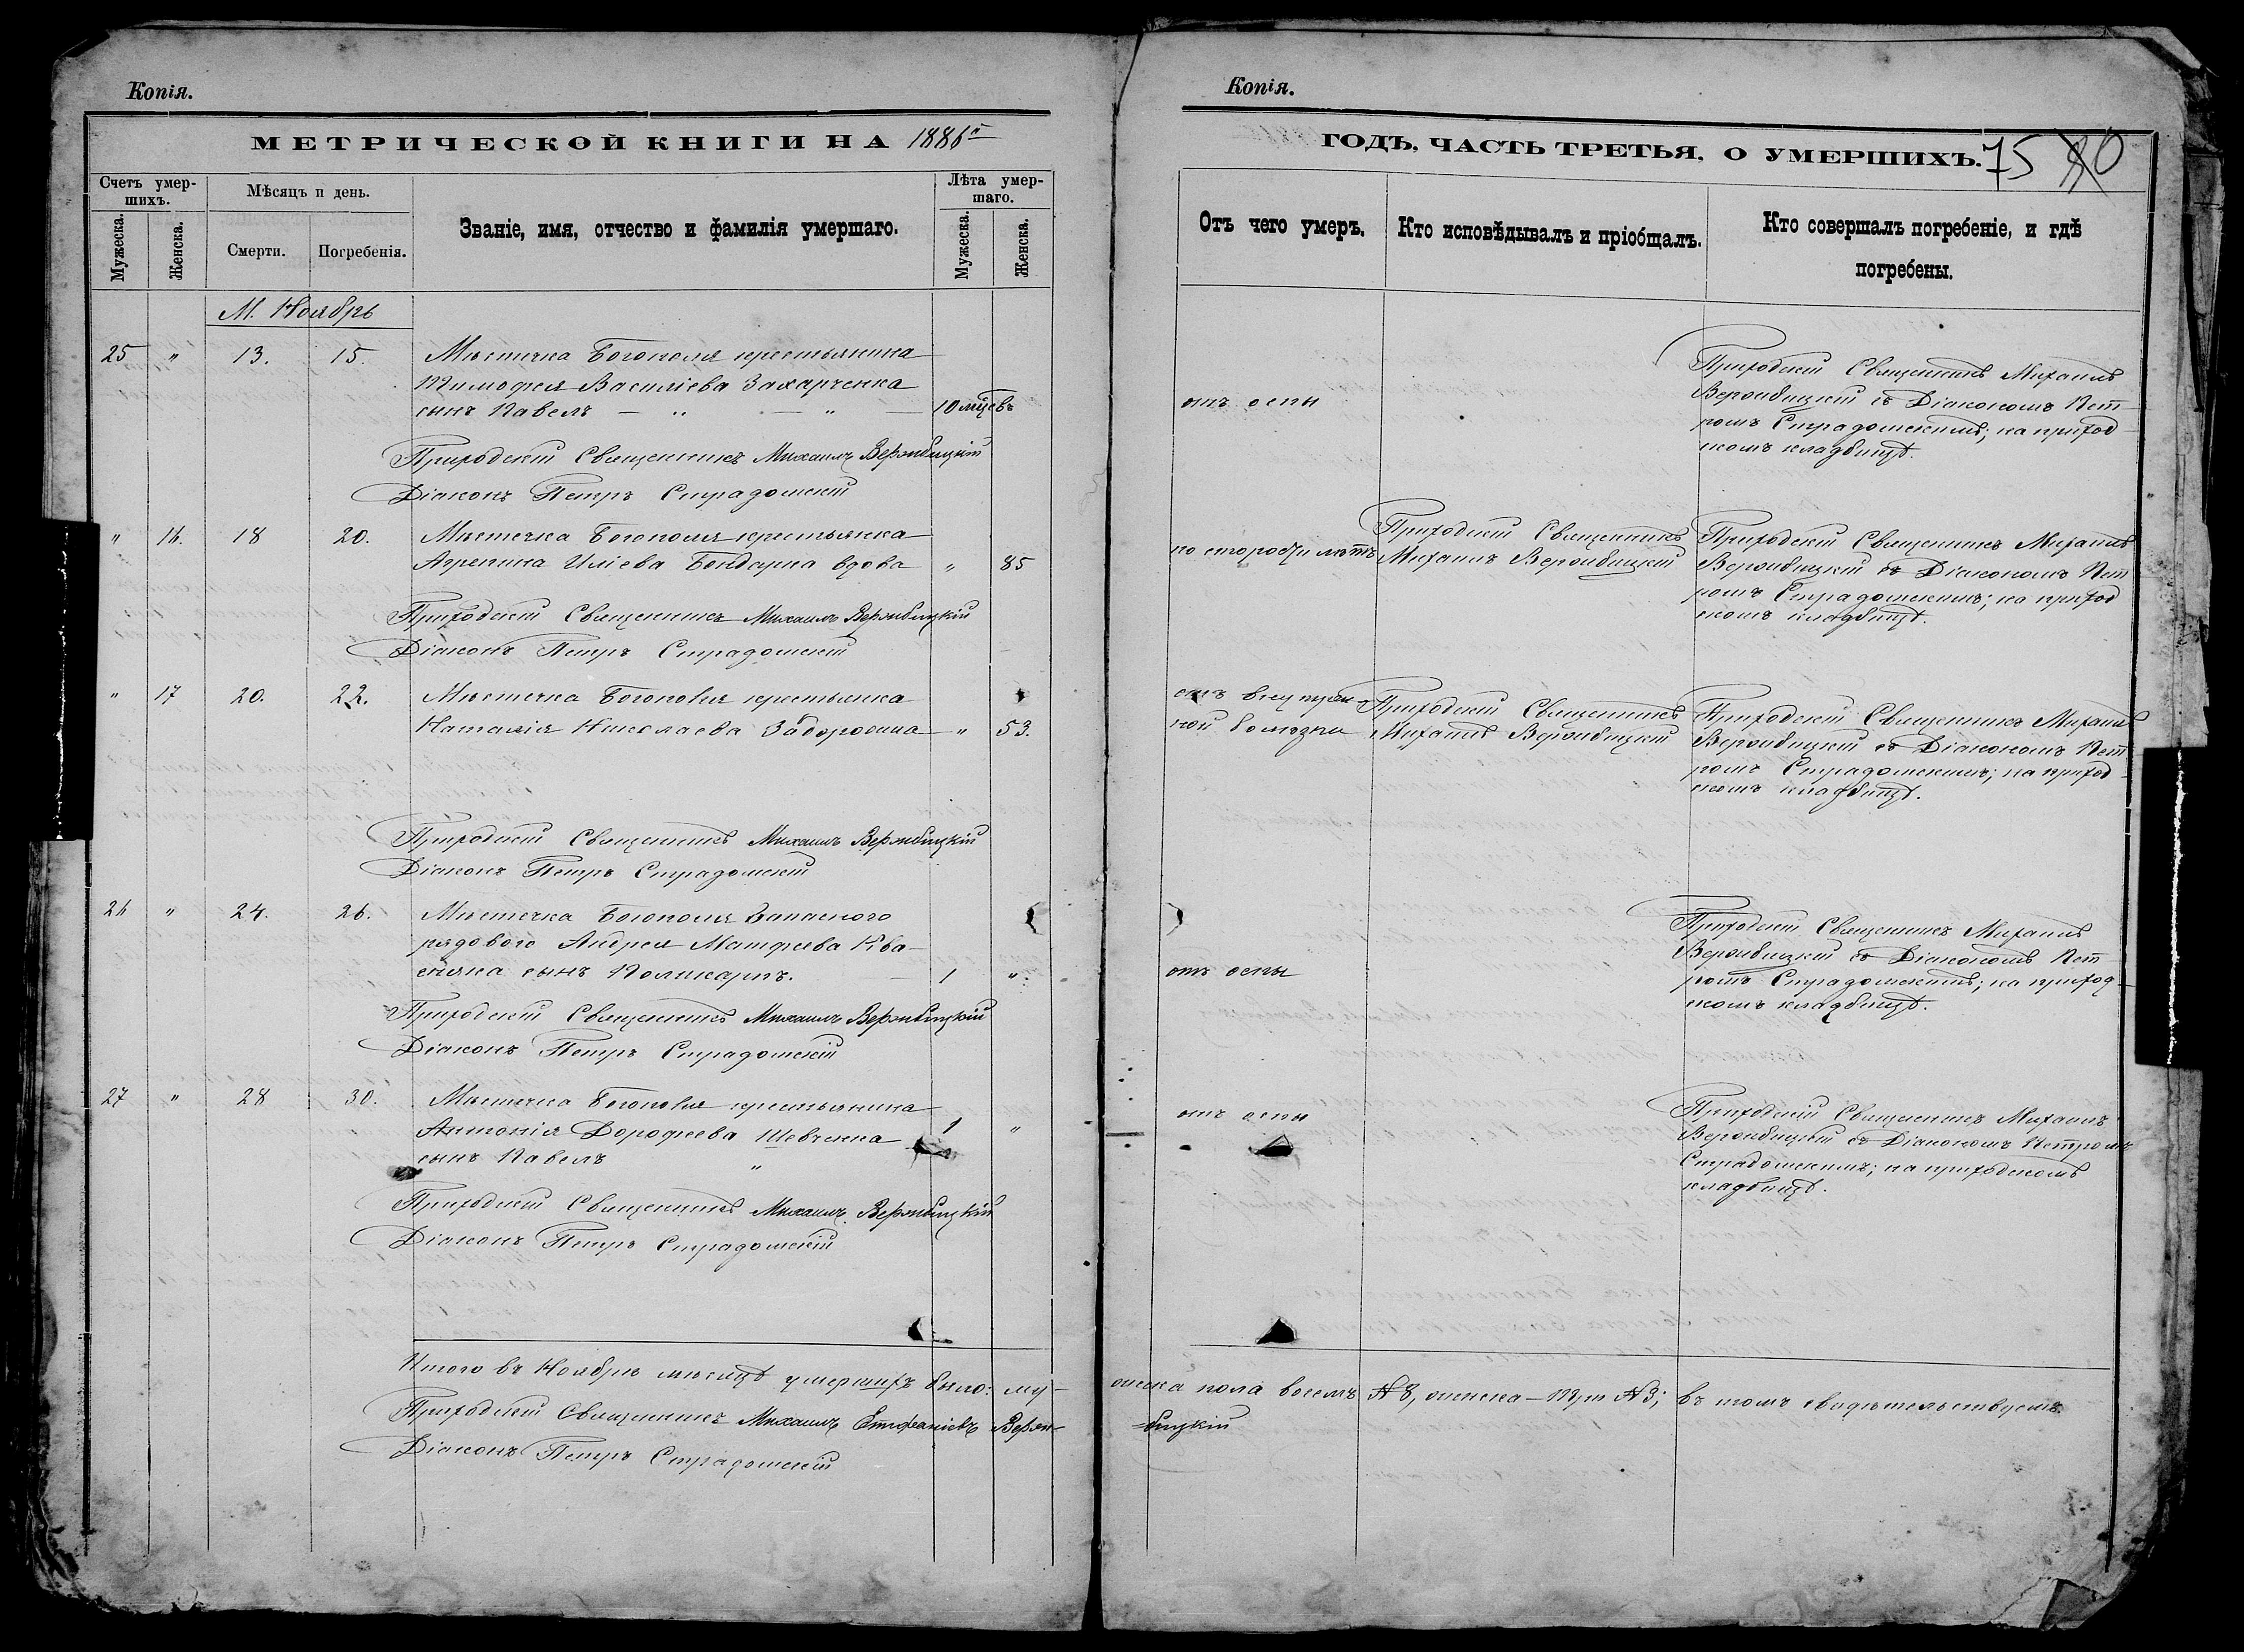 Копія.
МЕТРИЧЕСКОЙ КНИГИ НА 1886й
Счетъ умер-
шихъ.
Мѣсяцъ и день.
Званіе, имя, отчество и фамилія умершаго.
Лѣта умер-
шаго.
Мужеска.
Женска.
Смерти.
Погребенія.
Мужеска.
Женска.
М. Ноябрь
25 " 13. 15. Мѣстечка Богополя крестьянина
Тимофея Василіева Захарченка
сынъ Павелъ — " — " — 10 мцевъ
Приходскій Священникъ Михаилъ Вержбицкій
Діаконъ Петръ Страдомскій
" 16. 18 20. Мѣстечка Богополя крестьянка
Агрепина Иліева Бондарка вдова " 85
Приходскій Священникъ Михаилъ Вержбицкій
Діаконъ Петръ Страдомскій
" 17 20. 22. Мѣстечка Богополя крестьянка
Наталія Николаева " 53.
Приходскій Священникъ Михаилъ Вержбицкій
Діаконъ Петръ Страдомскій
26 " 24. 26. Мѣстечка Богополя Запасного
рядового Андрея Матфеева Ква-
сняка сынъ Поликарпъ. — 1 "
Приходскій Священникъ Михаилъ Вержбицкій
Діаконъ Петръ Страдомскій
27 " 28 30. Мѣстечка Богополя крестьянина
Антонія Дорофеева Шевченка 1 "
сынъ Павелъ "
Приходскій Священникъ Михаилъ Вержбицкій
Діаконъ Петръ Страдомскій
Итого въ Ноябрѣ мѣсяцѣ умершихъ было: му-
Приходскій Священникъ Михаилъ Епифаніевъ Верж-
Діаконъ Петръ Страдомскій
Копія.
ГОДЪ, ЧАСТЬ ТРЕТЬЯ, О УМЕРШИХЪ. 75 80
Отъ чего умеръ.
Кто исповѣдывалъ и пріобщалъ.
Кто совершалъ погребеніе, и гдѣ
погребены.
отъ оспы
Приходскій Священникъ Михаилъ
Вержбицкій съ Діакономъ Пет-
ромъ Страдомскимъ; на приход-
скомъ кладбищѣ.
по старости лѣтъ
Приходскій Священникъ
Михаилъ Вержбицкій
Приходскій Священникъ Михаилъ
Вержбицкій съ Діакономъ Пет-
ромъ Страдомскимъ; на приход
скомъ кладбищѣ.
отъ внутрен-
ной болѣзни
Приходскій Священникъ
Михаилъ Вержбицкій
Приходскій Священникъ Михаилъ
Вержбицкій съ Діакономъ Пет-
ромъ Страдомскимъ; на приход-
скомъ кладбищѣ.
отъ оспы
Приходскій Священникъ Михаилъ
Вержбицкій съ Діакономъ Пет
ромъ Страдомскимъ; на приход-
скомъ кладбищѣ.
отъ оспы
Приходскій Священникъ Михаилъ
Вержбицкій съ Діакономъ Петромъ
Страдомскимъ; на приходскомъ
кладбищѣ.
жеска пола восемь № 8, женска — три № 3; въ томъ свидѣтельствуемъ.
-бицкій